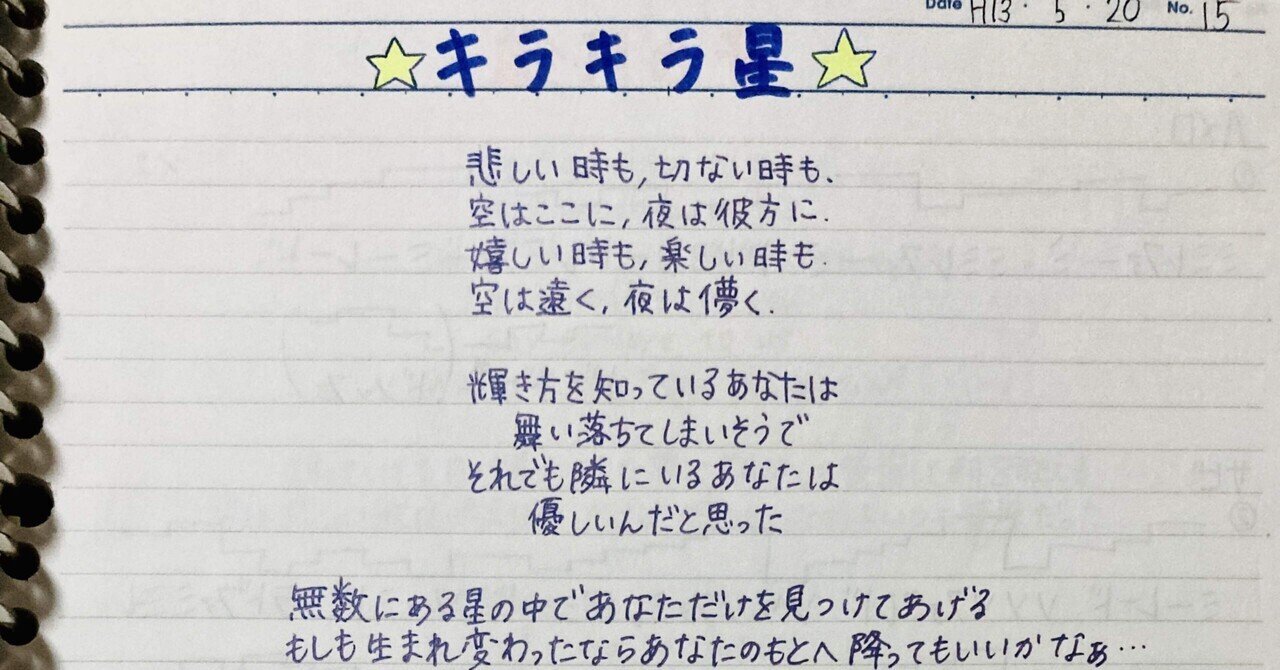 Date H13・5・20 No. 15
☆キラキラ星☆
悲しい時も,切ない時も.
空はここに,夜は彼方に.
嬉しい時も,楽しい時も.
空は遠く,夜は儚く.
輝き方を知っているあなたは
舞い落ちてしまいそうで
それでも隣にいるあなたは
優しいんだと思った
無数にある星の中であなただけを見つけてあげる
もしも生まれ変わったならあなたのもとへ降ってもいいかなぁ…